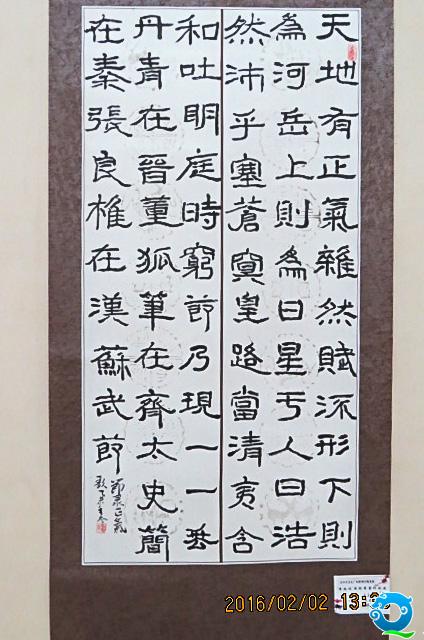 天地有正氣雜然賦流形下則
為河岳上則為日星亏人曰浩
然沛乎塞蒼冥皇路當清夷含
和吐明庭時窮節乃現一一垂
丹青在晉董狐筆在齊太史簡
在秦張良椎在漢蘇武節
節录正氣
歌乙未年冬
2016/02/02